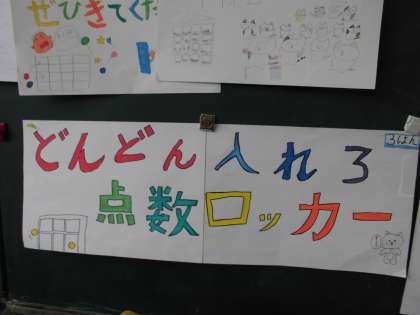 ぜひきてくだ
ろばん
どんどん入れろ
点数ロッカー